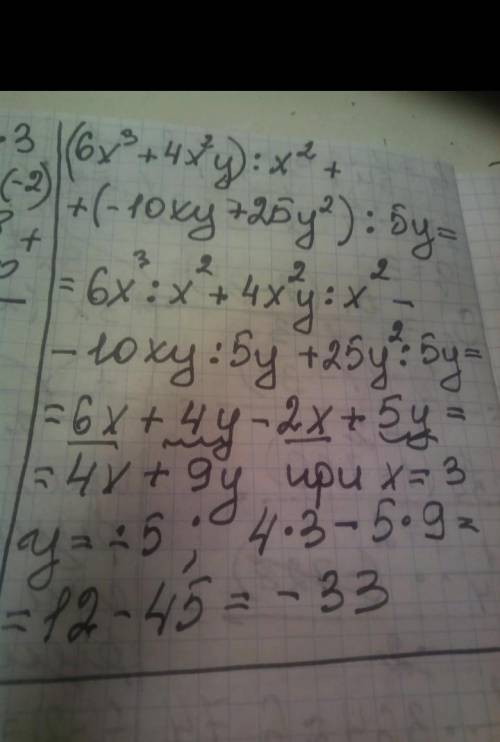 · 3
(-2)
+
(6x³ + 4x²y) : x² +
+ (-10xy + 25y²) : 5y =
= 6x³ : x² + 4x²y : x² -
- 10xy : 5y + 25y² : 5y =
= 6x + 4y - 2x + 5y =
= 4x + 9y при x = 3
y = -5 ; 4·3 - 5·9 =
= 12 - 45 = -33